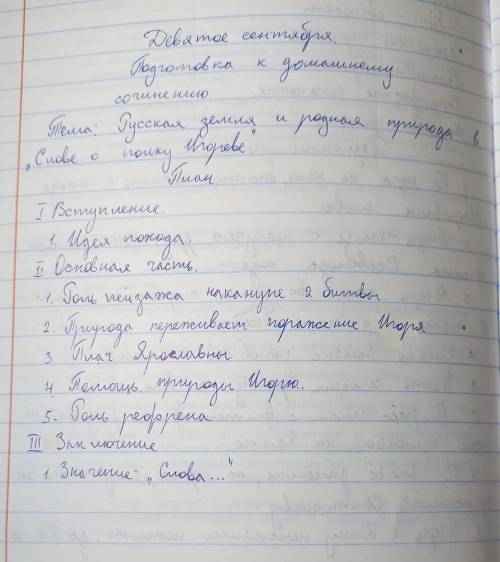 Девятое сентября.
Подготовка к домашнему
сочинению
Тема: Русская земля и родная природа в
„Слове о полку Игореве"
План
I Вступление.
1. Идея похода.
II Основная часть.
1. Роль пейзажа накануне 2 битвы
2. Природа переживает поражение Игоря
3 Плач Ярославны
4. Помощь природы Игорю.
5. Роль рефрена
III Заключение
1. Значение „Слова..."